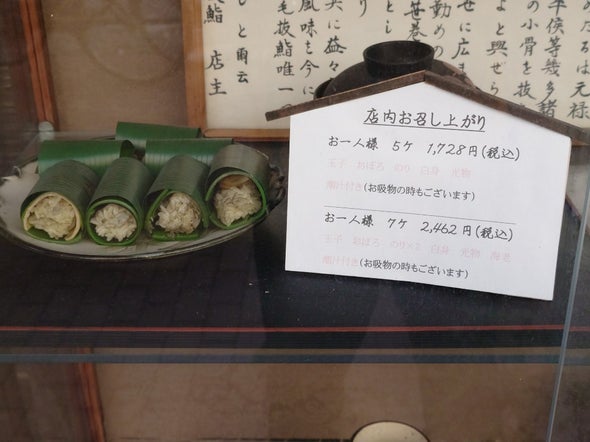 めたるは元禄
平侯等幾多諸
の小骨を抜
よと興ぜら
せに広ま
勤めの
笹巻
とし
実に益々
風味を今に
毛抜鮨唯一の
しと爾云
鮨 店主
店内お召し上がり
お一人様 5ケ 1,728円(税込)
玉子 おぼろ のり 白身 光物
潮汁付き(お吸物の時もございます)
お一人様 7ケ 2,462円(税込)
玉子 おぼろ のり×2 白身 光物 海老
潮汁付き(お吸物の時もございます)